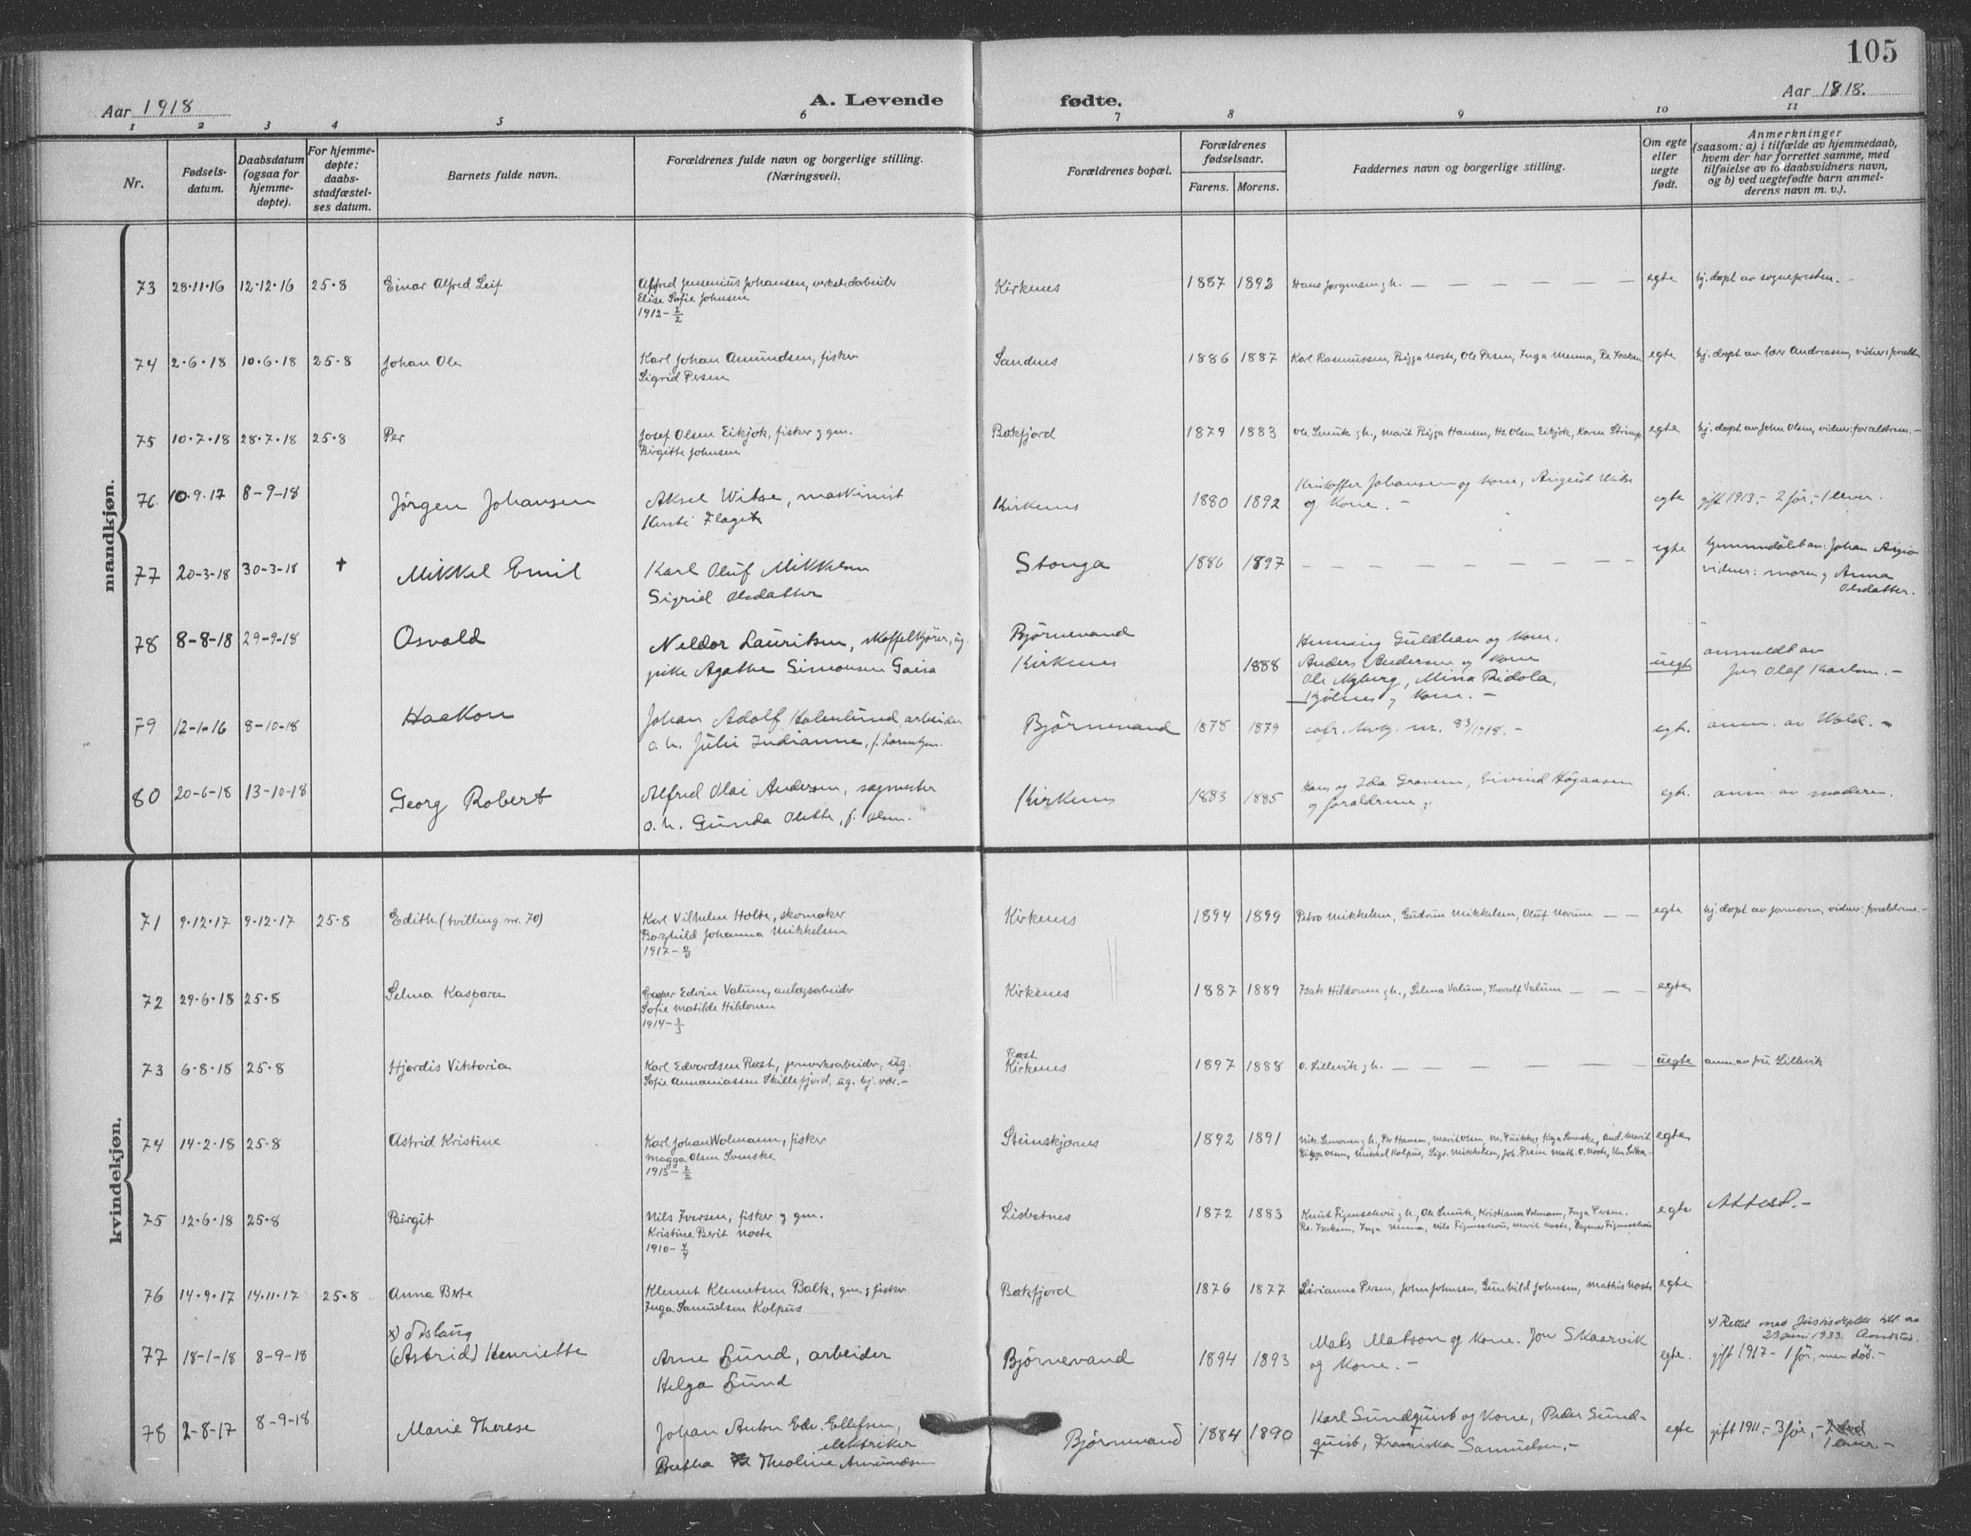 105
Aar 1918
A. Levende fødte.
Aar 1818.
1 2 3 4 5 6 7 8 9 10 11
Nr.
Fødsels-
datum.
Daabsdatum
(ogsaa for
hjemme-
døpte).
For hjemme-
døpte:
daabs-
stadfæstel-
ses datum.
Barnets fulde navn.
Forældrenes fulde navn og borgerlige stilling.
(Næringsvei).
Forældrenes bopæl.
Forældrenes
fødselsaar.
Farens. Morens.
Faddernes navn og borgerlige stilling.
Om egte
eller
uegte
født.
Anmerkninger
(saasom: a) i tilfælde av hjemmedaab,
hvem der har forrettet samme, med
tilføielse av to daabsvidners navn,
og b) ved uegtefødte barn anmel-
derens navn m. v.).
mandkjøn.
73 28·11·16 12·12·16 25·8 Einar Alfred Leif Alfred Jensenius Johansen, verkstedarbeider Kirkenes 1887 1892 Hans Jørgensen g h. — — — — — — egte hj. døpt av sognepresten. —
Elise Sofie Johnsen
1912 - 2/2
74 2·6·18 10·6·18 25·8 Johan Ole Karl Johan Amundsen, fisker Sandnes 1886 1887 Karl Rasmussen, Bigga Noste, Ole Persen, Inga Menna, Pe Isaksen egte hj. døpt av lær Andreasen, vidner: foræld
Sigrid Persen
75 10·7·18 28·7·18 25·8 Per Josef Olsen Eikjok, fisker g gm. Bøkfjord 1879 1883 Ole Smuk g h., Marit Bigga Hansen, Hs. Olsen Eikjok, Karen Strimp egte hj. døpt av John Olsen, vidner: forældrene. —
Birgitte Johnsen
76. 10·9·17 8-9-18 Jörgen Johansen Aksel Witse, maskinist Kirkenes 1880 1892 Kristoffer Johansen og kone, August egte gift 1913, - 2 før, - 1 lever.
Kirsti Flaget og kone. —
77 20-3-18 30-3-18 † Mikkel Emil Karl Oluf Mikkelsen Stonga 1886 1897 — — — — — — — — egte hjemmedöbt av: Johan
Sigrid Olsdatter vidner: moren g Anna
Olsdatter.
78 8-8-18 29-9-18 Osvald Neldor Lauritsen, skaffelkjører, ug. Björnevand Henning Guldhav og kone. anmeldt av
pike Agathe Simonsen Gaisa Kirkenes 1888 Anders Andersen og kone uegte Jens Olaf Karlsen. —
Ole Nyberg, Mina Ridola,
Kjölnes g kone. —
79 12-1-16 8-10-18 Haakon Johan Adolf Holenlund arbeider Björnevand 1878 1879 cfr. nr. 83/1918. — egt. anm. av Wold. —
o. h. Julie Indianne, f. Lorentzen.
80 20-6-18 13-10-18 Georg Robert Alfred Olai Andersen, sagmester Kirkenes 1883 1885 Hans og Ida Gravem, Eivind Högaasen egt. anm. av moderen.
o. h. Gunda Olette, f. Olsen. og forældrene.
kvindekjøn.
71 9·12·17 9·12·17 25·8 Edith (tvilling nr. 70) Karl Vilhelm Holte, skomaker Kirkenes 1894 1899 Petra Mikkelsen, Gudrun Mikkelsen, Oluf Norum — — egte hj. døpt av jormoren, vidner: forældrene. —
Borghild Johanna Mikkelsen
1917 -
72 29·6·18 25·8 Selma Kaspara Casper Edvin Valum, anlægsarbeider Kirkenes 1887 1889 Isak Hildonen g h., Selma Valum, Thoralf Valum — — — egte
Sofie Matilde Hildonen
1914 - 3/3
73 6·8·18 25·8 Hjørdis Viktoria Karl Edvardsen Rast, jernverksarbeider, ug. Rast 1897 1888 O. Lillevik g h. — — — — — — uegte anm. av fru Lillevik
Sofie Annaniassen Skillefjord, ug. hj. vær. — Kirkenes
74 14·2·18 25·8 Astrid Kristine Karl Johan Wolmann, fisker Steinskjernes 1892 1891 egte
Magga Olsen Svenske
1915 - 2/2
75 12·6·18 25·8 Birgit Nils Iversen, fisker g gm. Lisbetnes 1872 1883 Knut Figenschou g h., Ole Smuk, Kristiana Volmann, Inga Persen. egte Attest. —
Kristine Berit Noste Pe. Isaksen, Inga Menna, Nils Figenschou, Marit Noste, Dagmar Figenschou
1910 - 4/4
76 14·9·17 14·11·17 25·8 Anna Berte Klemet Klemetsen Balk, gm. g fisker Bøkfjord 1876 1877 Lovianna Persen, John Johnsen, Gunhild Johnsen, Mathis Noste egte
Inga Samuelsen Kolpus
77 18-1-18 8-9-18 x) Aslaug
(Astrid) Henriette Arne Lund, arbeider Björnevand 1894 1893 Mats Matson og kone. Jon Skaarvik egte. x) Rettet med Justisdeptets till. av
Helga Lund og kone. — 23 juni 1933.
gift 1917 - 1 för, men död. —
78 2-8-17 8-9-18 Marie Therese Johan Anton Edv. Ellefsen, Björnevand 1884 1890 Karl Sundquist og kone, Peder Sund- egte gift 1911. - 3 för, -
elektriker quist, Franciska Samuelsen. — 1 lever. —
Bertha Theoline Amundsen